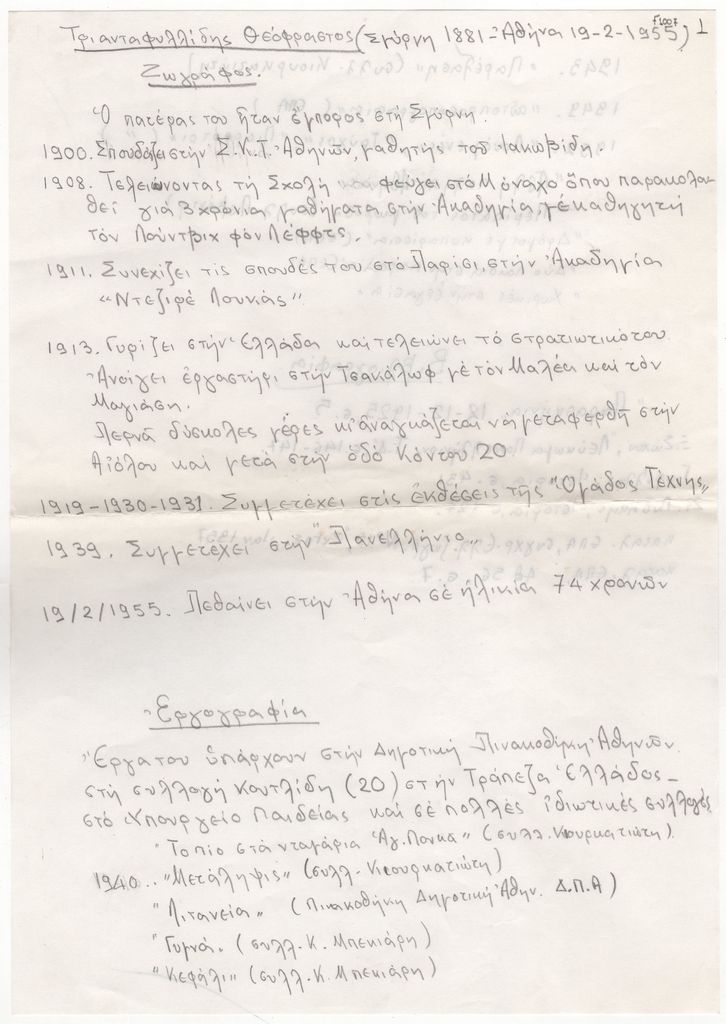 F1007
Τριανταφυλλίδης Θεόφραστος (Σμύρνη 1881-Αθήνα 19-2-1955) 1
Ζωγράφος.
Ὁ πατέρας του ἦταν ἔμπορος στή Σμύρνη.
1900. Σπουδάζει στήν Σ.Κ.Τ. Ἀθηνῶν, μαθητής τοῦ Ἰακωβίδη.
1908. Τελειώνοντας τή Σχολή φεύγει στό Μόναχο ὅπου παρακολου
θεῖ γιά 3 χρόνια μαθήματα στήν Ἀκαδημία, μέ καθηγητή
τόν Λούντβιχ φόν Λέφφτς.
1911. Συνεχίζει τίς σπουδές του στό Παρίσι, στήν Ἀκαδημία
"Ντεζιρέ Λουκάς"
1913. Γυρίζει στήν Ἑλλάδα καί τελειώνει τό στρατιωτικό του.
Ἀνοίγει ἐργαστήρι στήν Τσακάλωφ μέ τόν Μαλέα καί τόν
Μαγιάση.
Περνᾶ δύσκολες μέρες κι ἀναγκάζεται νά μεταφερθῆ στήν
Αἰόλου καί μετά στήν ὁδό Κόντου 20
1919-1930-1931. Συμμετέχει στίς ἐκθέσεις τῆς "Ὁμάδος Τέχνης"
1939. Συμμετέχει στήν "Πανελλήνιο"
19/2/1955. Πεθαίνει στήν Ἀθήνα σέ ἡλικία 74 χρονῶν
Ἐργογραφία
Ἔργα του ὑπάρχουν στήν Δημοτική Πινακοθήκη Ἀθηνῶν
στή συλλογή Κουτλίδη (20) στήν Τράπεζα Ἑλλάδος-
στό Ὑπουργεῖο Παιδείας καί σέ πολλές ἰδιωτικές συλλογές
"Τοπίο στά νταμάρια Ἁγ. Λουκᾶ" (συλλ. Κιουρκατιώτη).
1940.. "Μετάληψις" (συλλ. Κιουρκατιώτη)
"Λιτανεία" (Πινακοθήκη Δημοτική Ἀθην. Δ.Π.Α)
"Γυμνά. (συλλ. Κ. Μπεκιάρη)
"Κεφάλι" (συλλ. Κ. Μπεκιάρη)